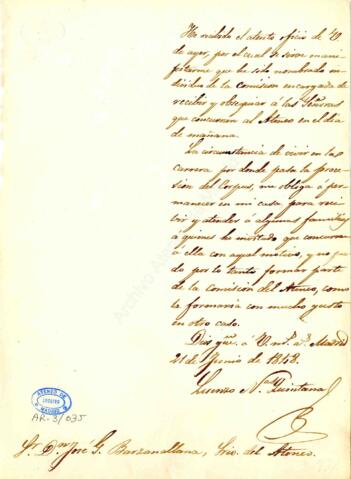 He recibido el atento oficio de V
de ayer, por el cual se sirve mani-
festarme que he sido nombrado in-
dividuo de la Comision encargada de
recibir y obsequiar á las Señoras
que concurran al Ateneo en el dia
de mañana.
La circunstancia de vivir en la
carrera por donde pasa la proce-
sion del Corpus, me obliga á per-
manecer en mi casa para reci-
bir y atender á algunas familias
á quienes he invitado que concurran
á ella con aquel motivo, y no pue-
do por lo tanto formar parte
de la comision del Ateneo, como
la formaria con mucho gusto
en otro caso.
Dios gue. á V. ms. as. Madrid
21 de Junio de 1848.
Lorenzo Ns. Quintana
ATENEO DE MADRID
AR-3/035
Sr. Dn. José G. Barzanallana, Srio. del Ateneo.